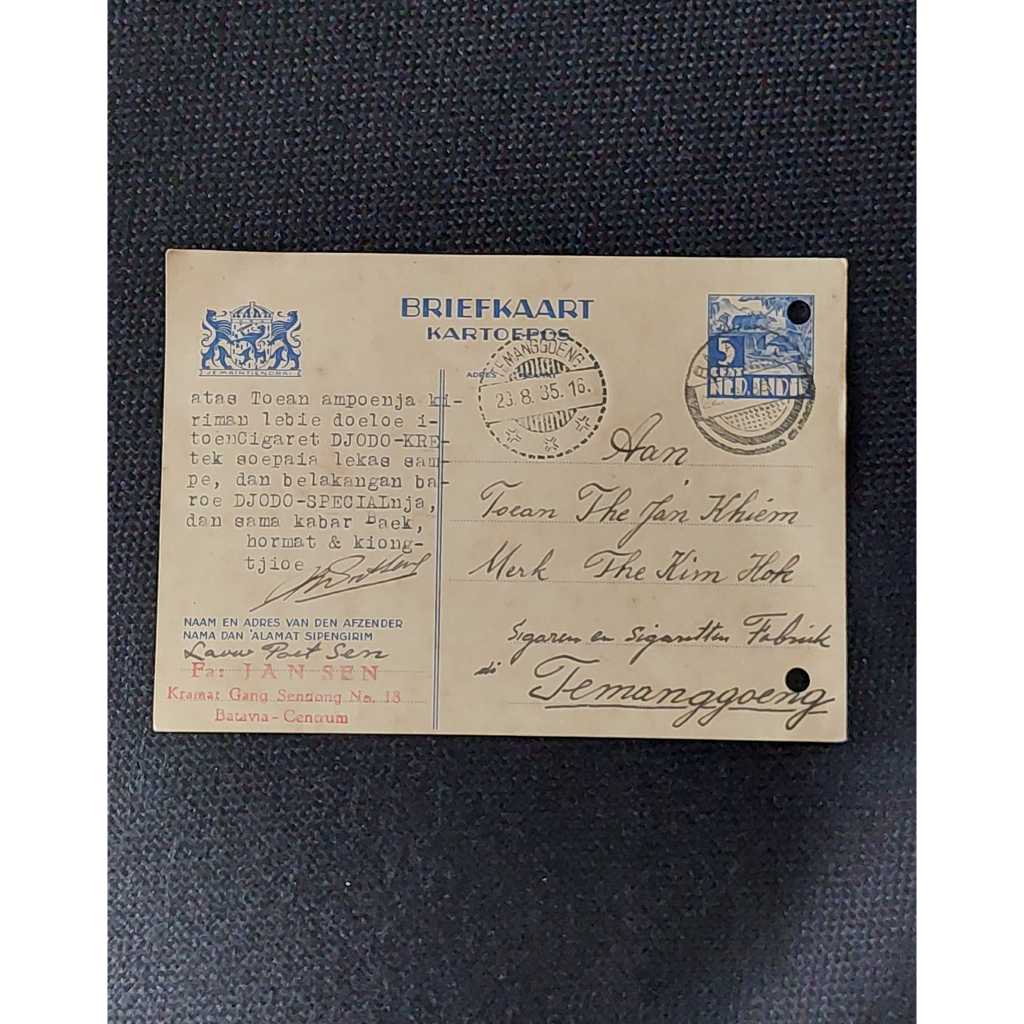 BRIEFKAART
KARTOEPOS
JE MAINTIENDRAI
5
CENT
NED. INDIE
ADRES
TEMANGGOENG
23.8.35.16.
atas Toean ampoenja ki-
riman lebie doeloe i-
toenCigaret DJODO-KRE-
tek soepaia lekas sam-
pe, dan belakangan ba-
roe DJODO-SPECIALnja,
dan sama kabar Baek,
hormat & kiong-
tjioe
NAAM EN ADRES VAN DEN AFZENDER
NAMA DAN ALAMAT SIPENGIRIM
Lauw Poet Sen
Fa: JAN SEN
Kramat Gang Sentiong No. 18
Batavia - Centrum
Aan
Toean The Jan Khiem
Merk The Kim Hok
Sigaren en Sigaretten Fabriek
di Temanggoeng